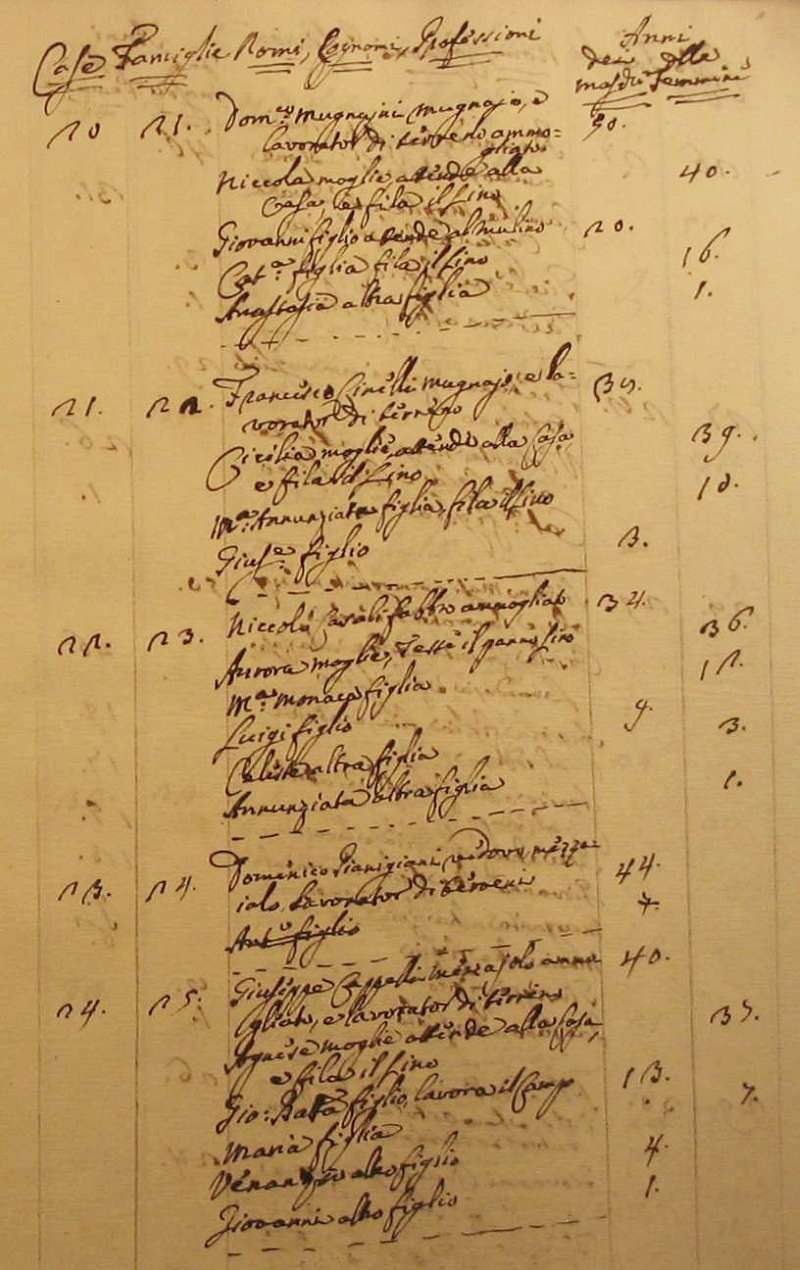 Case Famiglie Nomi, Cognomi, Professioni Anni
dei della
maschi Femmine
20 21. Dom.co Mugnajni mugnajo, e 50.
lavorator di terreno ammo=
gliato
Niccola moglie attende alla 40.
Casa, e fila il Lino
Giovanni figlio attende al mulino 20.
Cat.a figlia fila il Lino 16.
Anastasia altra figlia 1.
21. 22. Francesco Cinelli mugnajo, e la=
vorator di terreno
Cicilia moglie, attende alla Casa 39.
e fila il Lino 18.
M.a Annunziata figlia, fila il Lino
Gius.e figlio 3.
22. 23. Niccola Casali fabbro ammogliato 34.
Aurora moglie, tesse il panno lino 36.
M.a Monaca figlia 12.
Luigi figlio 9.
Celeste altra figlia 3.
Annunziata altra figlia 1.
23. 24. Domenico Pianigiani vedovo, mezza= 44.
iolo, lavorator di terreni
Ant.o figlio 7.
24. 25. Giuseppe Cappelli ammo= 40.
gliato, e lavorator di terreno
Agnese moglie attende alla Casa, 37.
e fila il Lino
Gio: Batta figlio, lavora il Campo 13.
Maria figlia 7.
Venanzio altro figlio 4.
Giovanni altro figlio 1.